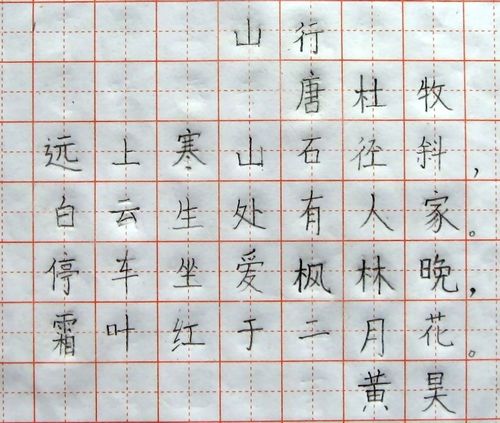 山行
唐杜牧
远上寒山石径斜,
白云生处有人家。
停车坐爱枫林晚,
霜叶红于二月花。
黄昊